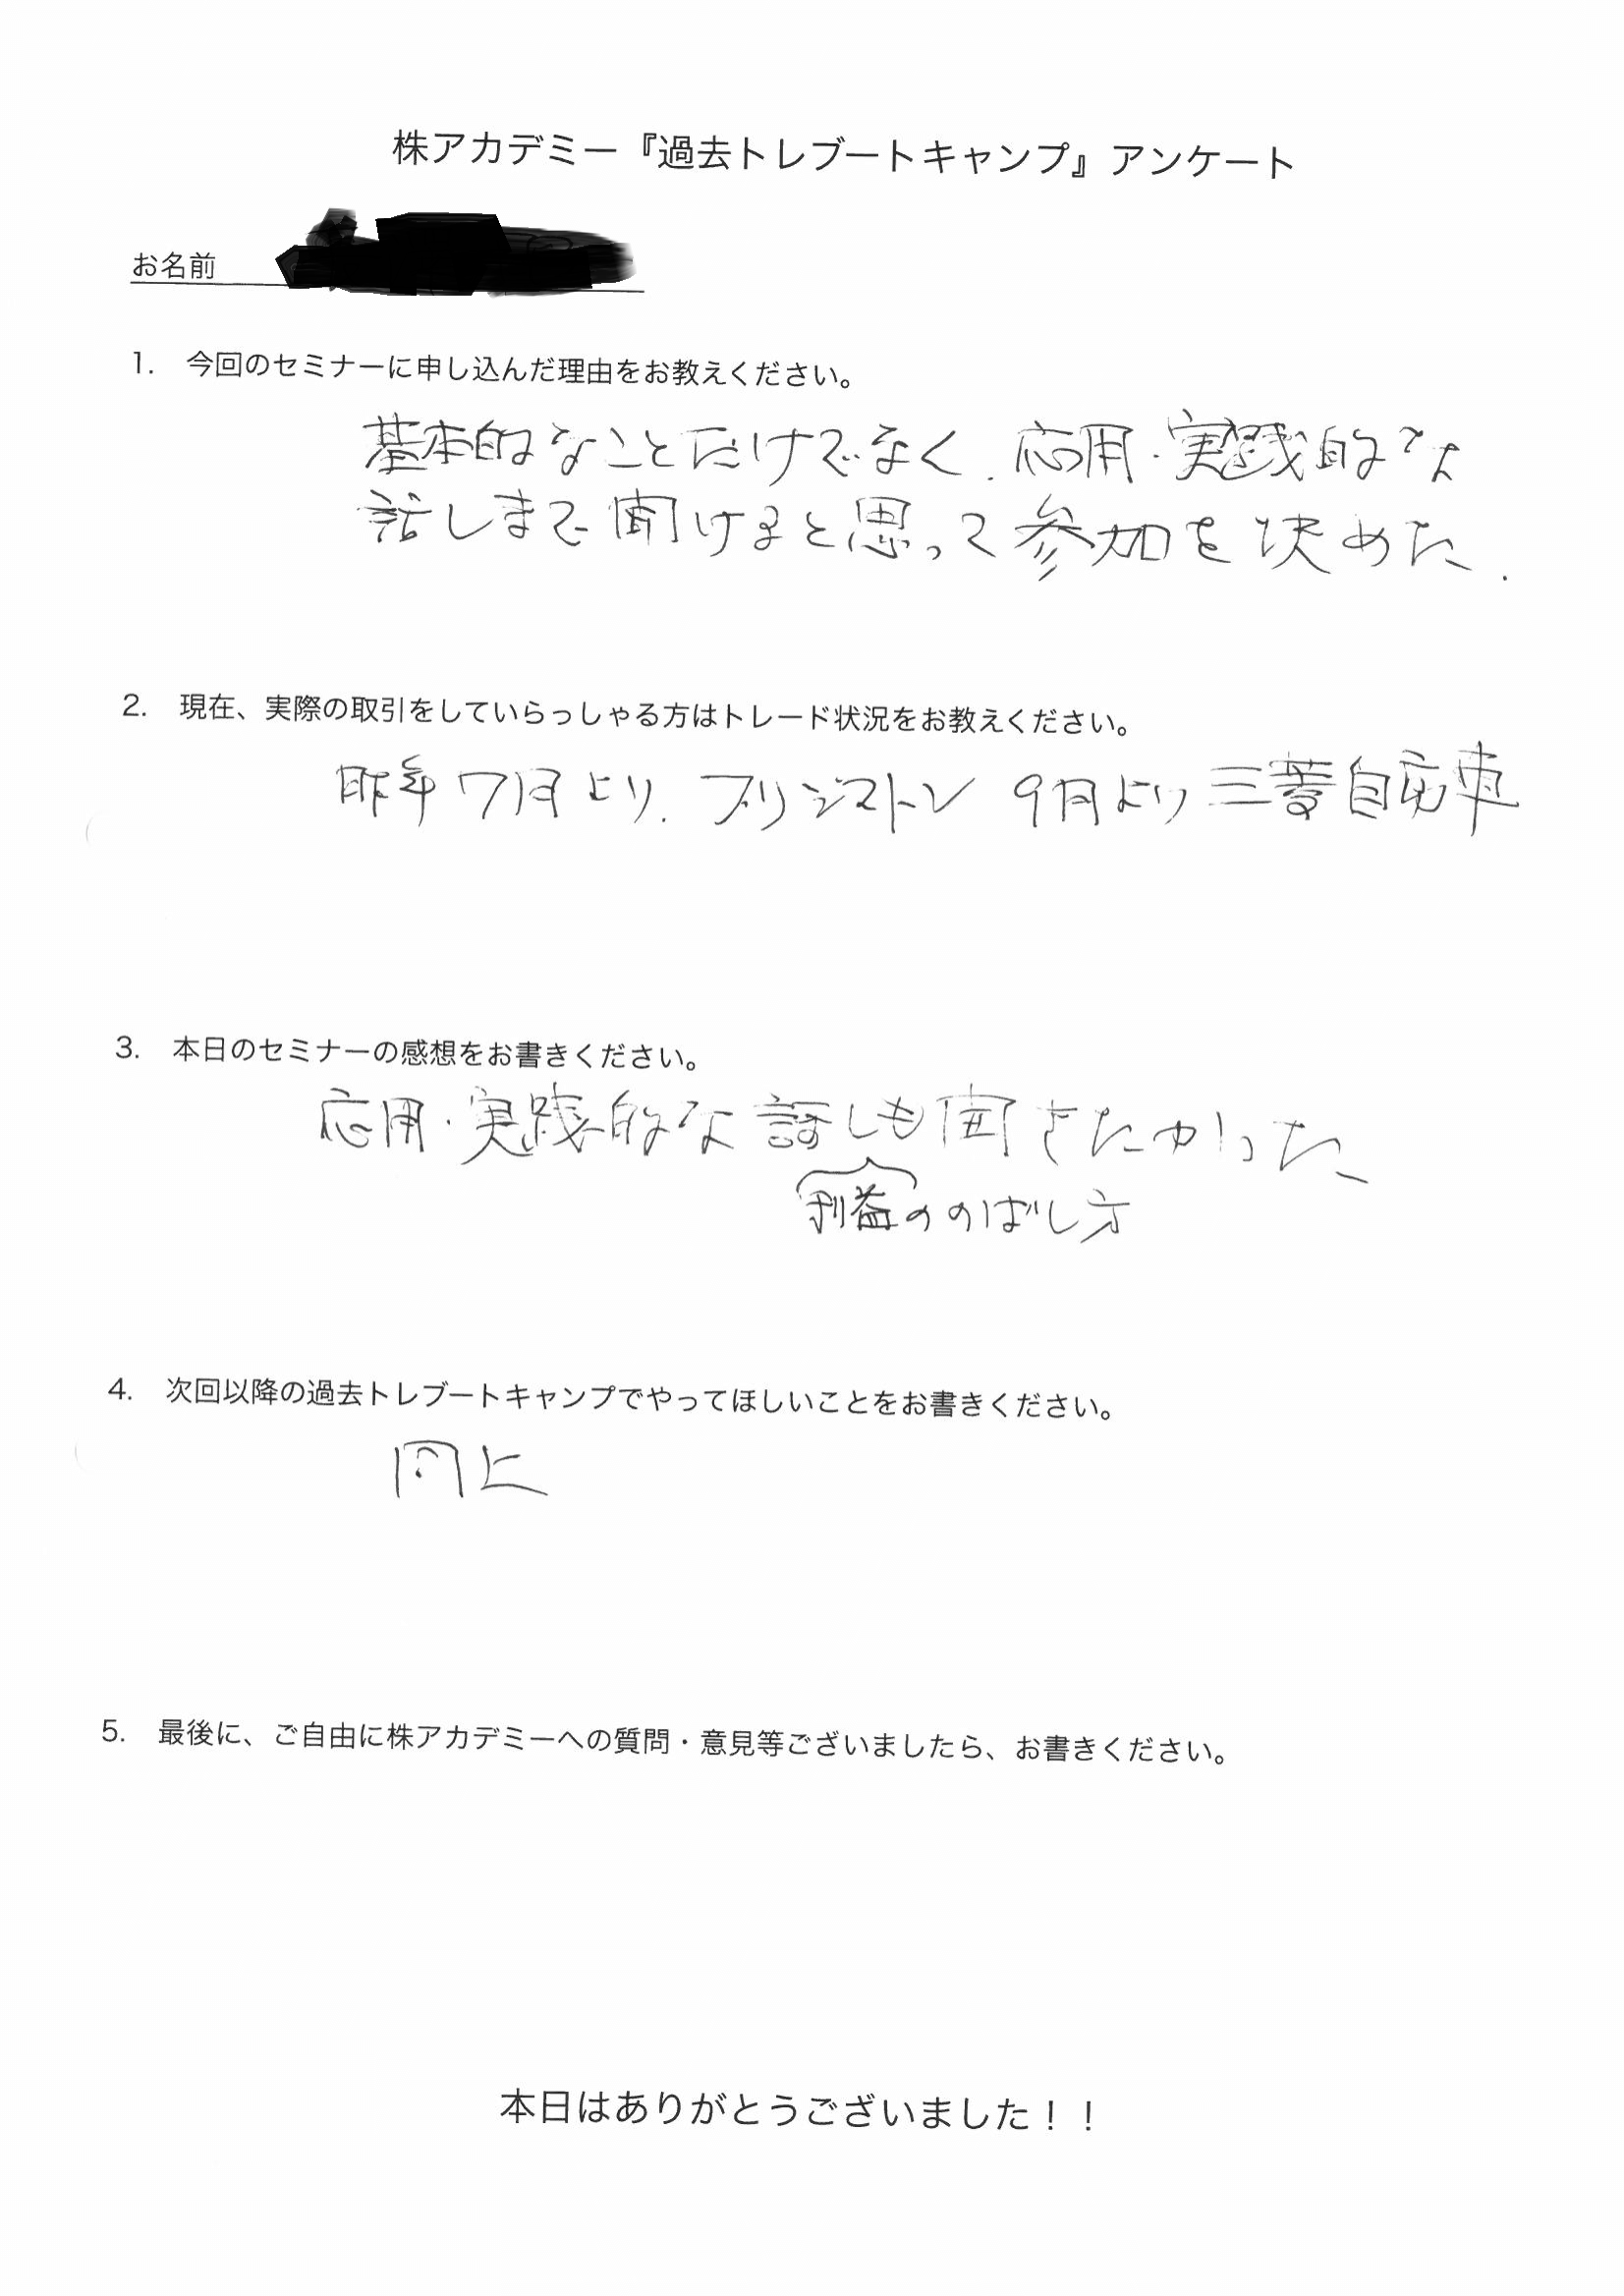 株アカデミー『過去トレブートキャンプ』アンケート
お名前
1. 今回のセミナーに申し込んだ理由をお教えください。
基本的なことだけでなく、応用・実践的な
話しまで聞けると思って参加を決めた.
2. 現在、実際の取引をしていらっしゃる方はトレード状況をお教えください。
昨年7月より、ブリジストン 9月より三菱自動車
3. 本日のセミナーの感想をお書きください。
応用・実践的な話しも聞きたかった、
利益ののばし方
4. 次回以降の過去トレブートキャンプでやってほしいことをお書きください。
同上
5. 最後に、ご自由に株アカデミーへの質問・意見等ございましたら、お書きください。
本日はありがとうございました！！